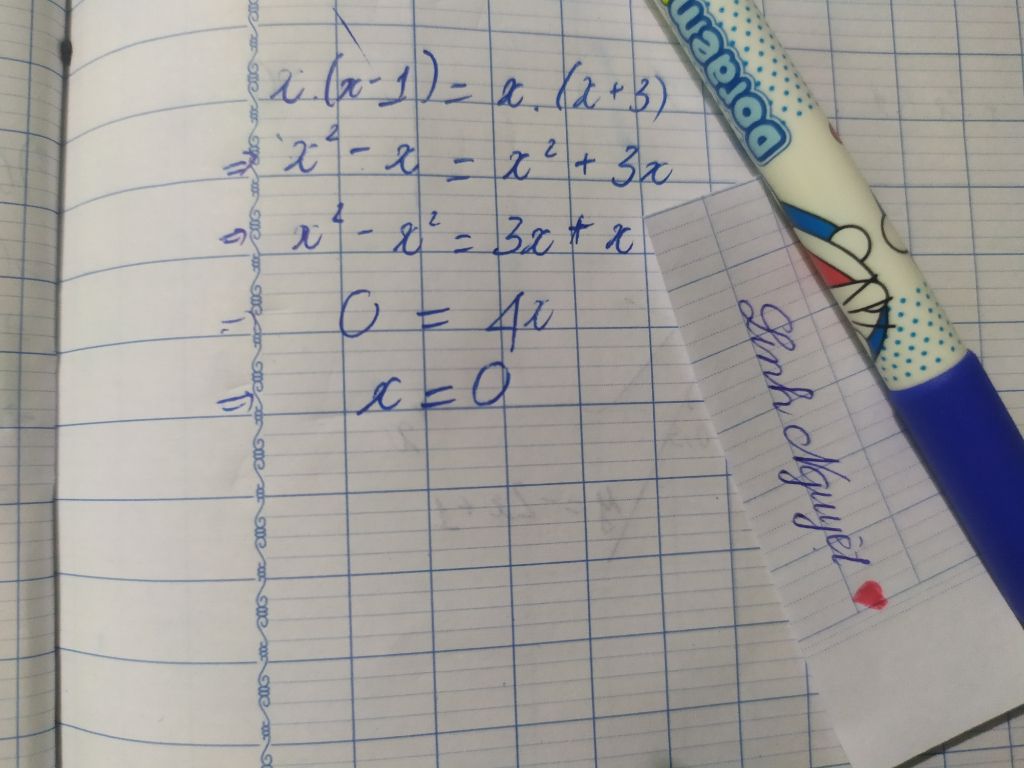 x.(x-1) = x.(x+3)
=> x² - x = x² + 3x
=> x² - x² = 3x + x
0 = 4x
=> x = 0
Doraem
Linh Nguyệt